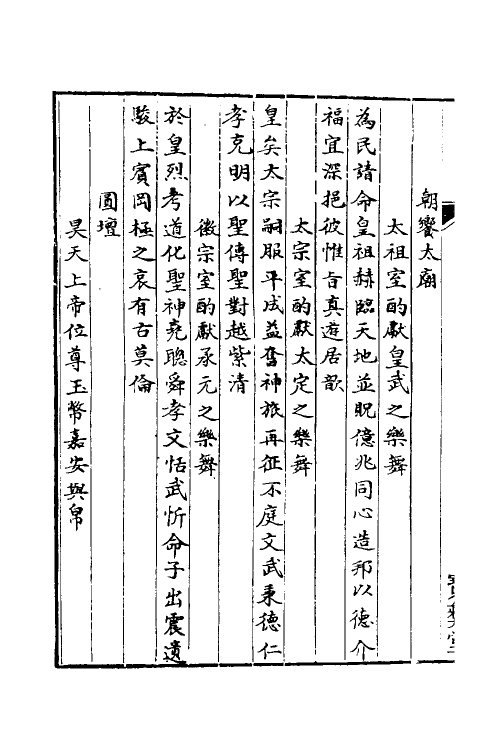 朝饗太廟
太祖室酌獻皇武之樂舞
為民請命皇祖赫臨天地並貺億兆同心造邦以德介
福宜深挹彼惟旨真遊居歆
太宗室酌獻太定之樂舞
皇矣太宗嗣服平成益奮神旅再征不庭文武秉德仁
孝克明以聖傳聖對越紫清
徽宗室酌獻承元之樂舞
於皇烈考道化聖神堯聰舜孝文恬武忻命子出震遺
駿上賓罔極之哀有古莫倫
圓壇
昊天上帝位尊玉幣嘉安與帛